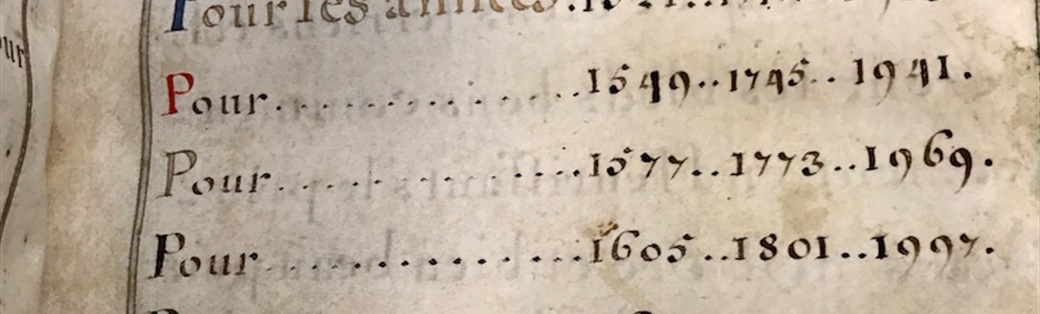 Pour les années.
Pour. . . . . . . . . . . . .1549..1745.. 1941.
Pour. . . . . . . . . . . ....1577..1773..1969.
Pour. . . . . . . . . . . ...1605..1801..1997.